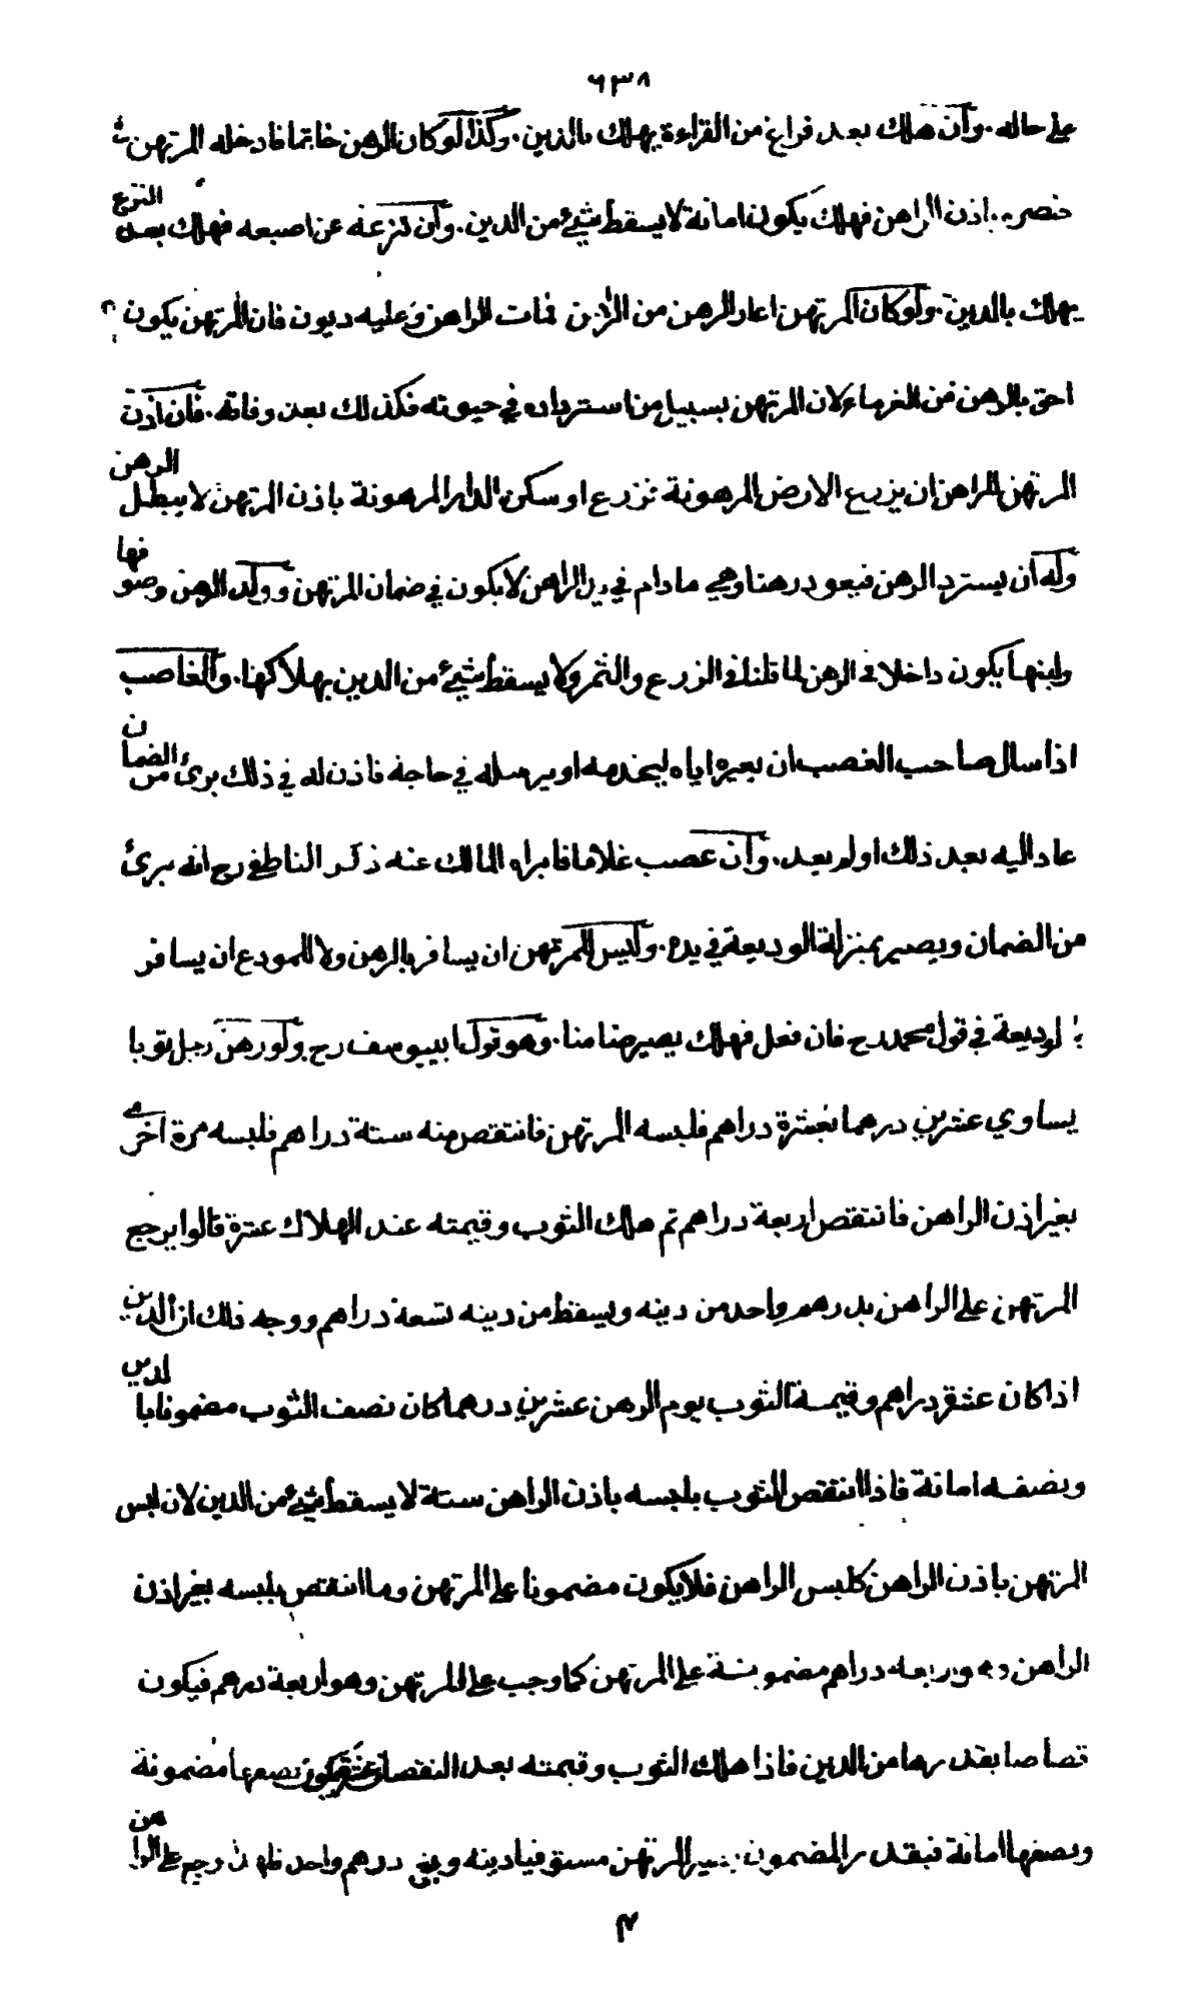 ٦٣٨
على حاله. وان هلك بعد فراغ من القراءة يهلك بالدين. وكذا لو كان الرهن خاتما فادخله المرتهن في
خنصره باذن الراهن فهلك يكون امانة لا يسقط شيئ من الدين. وان نزعه عن اصبعه فهلك بعد النزع
يهلك بالدين. ولو كان المرتهن اعار الرهن من الراهن فمات الراهن وعليه ديون فان المرتهن يكون
احق بالرهن من الغرماء لان المرتهن بسبيل من استرداده في حيوته فكذلك بعد وفاته. فان اذن
المرتهن للراهن ان يزرع الارض المرهونة فزرع او سكن الدار المرهونة باذن المرتهن لا يبطل الرهن
وله ان يسترد الرهن فيعود رهنا وهي ما دام في يد الراهن لا يكون في ضمان المرتهن وولد الرهن وصوفها
ولبنها يكون داخلا في الرهن لما قلنا في الزرع والثمر ولا يسقط شيئ من الدين بهلاكها. والغاصب
اذا سال صاحب الغصب ان يعيره اياه ليخدمه او يرسله في حاجة فاذن له في ذلك برئ من الضمان
عاد اليه بعد ذلك او لم يعد. وان غصب غلاما فابراه المالك عنه ذكر الناطفي رح انه برئ
من الضمان ويصير بمنزلة الوديعة في يده. وليس للمرتهن ان يسافر بالرهن ولا للمودع ان يسافر
بالوديعة في قول محمد رح فان فعل فهلك يصير ضامنا. وهو قول ابيوسف رح ولو رهن رجل ثوبا
يساوي عشرين درهما بعشرة دراهم فلبسه المرتهن فانتقص منه ستة دراهم فلبسه مرة اخرى
بغير اذن الراهن فانتقص اربعة دراهم ثم هلك الثوب وقيمته عند الهلاك عشرة قالوا يرجع
المرتهن على الراهن بدرهم واحد من دينه ويسقط من دينه تسعة دراهم ووجه ذلك ان الدين
اذا كان عشرة دراهم وقيمة الثوب يوم الرهن عشرين درهما كان نصف الثوب مضمونا بالدين
ونصفه امانة فاذا انتقص الثوب بلبسه باذن الراهن ستة لا يسقط شيئ من الدين لان لبس
المرتهن باذن الراهن كلبس الراهن فلا يكون مضمونا على المرتهن وما انتقص بلبسه بغير اذن
الراهن وهو اربعة دراهم مضمونة على المرتهن كما وجب على المرتهن وهو اربعة درهم فيكون
قصاصا بقدرها من الدين فاذا هلك الثوب وقيمته بعد النقصان عشرة يكون نصفها مضمونة
ونصفها امانة فبقدر المضمون يصير المرتهن مستوفيا دينه وبقي درهم واحد يرجع على الراهن